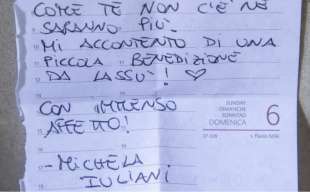 COME TE NON C'È NE
SARANNO PIÙ.
MI ACCONTENTO DI UNA
PICCOLA BENEDIZIONE
DA LASSÙ! ♡
CON IMMENSO
AFFETTO!
SUNDAY
DIMANCHE
SONNTAG
DOMENICA
6
- MICHELA
IULIANI